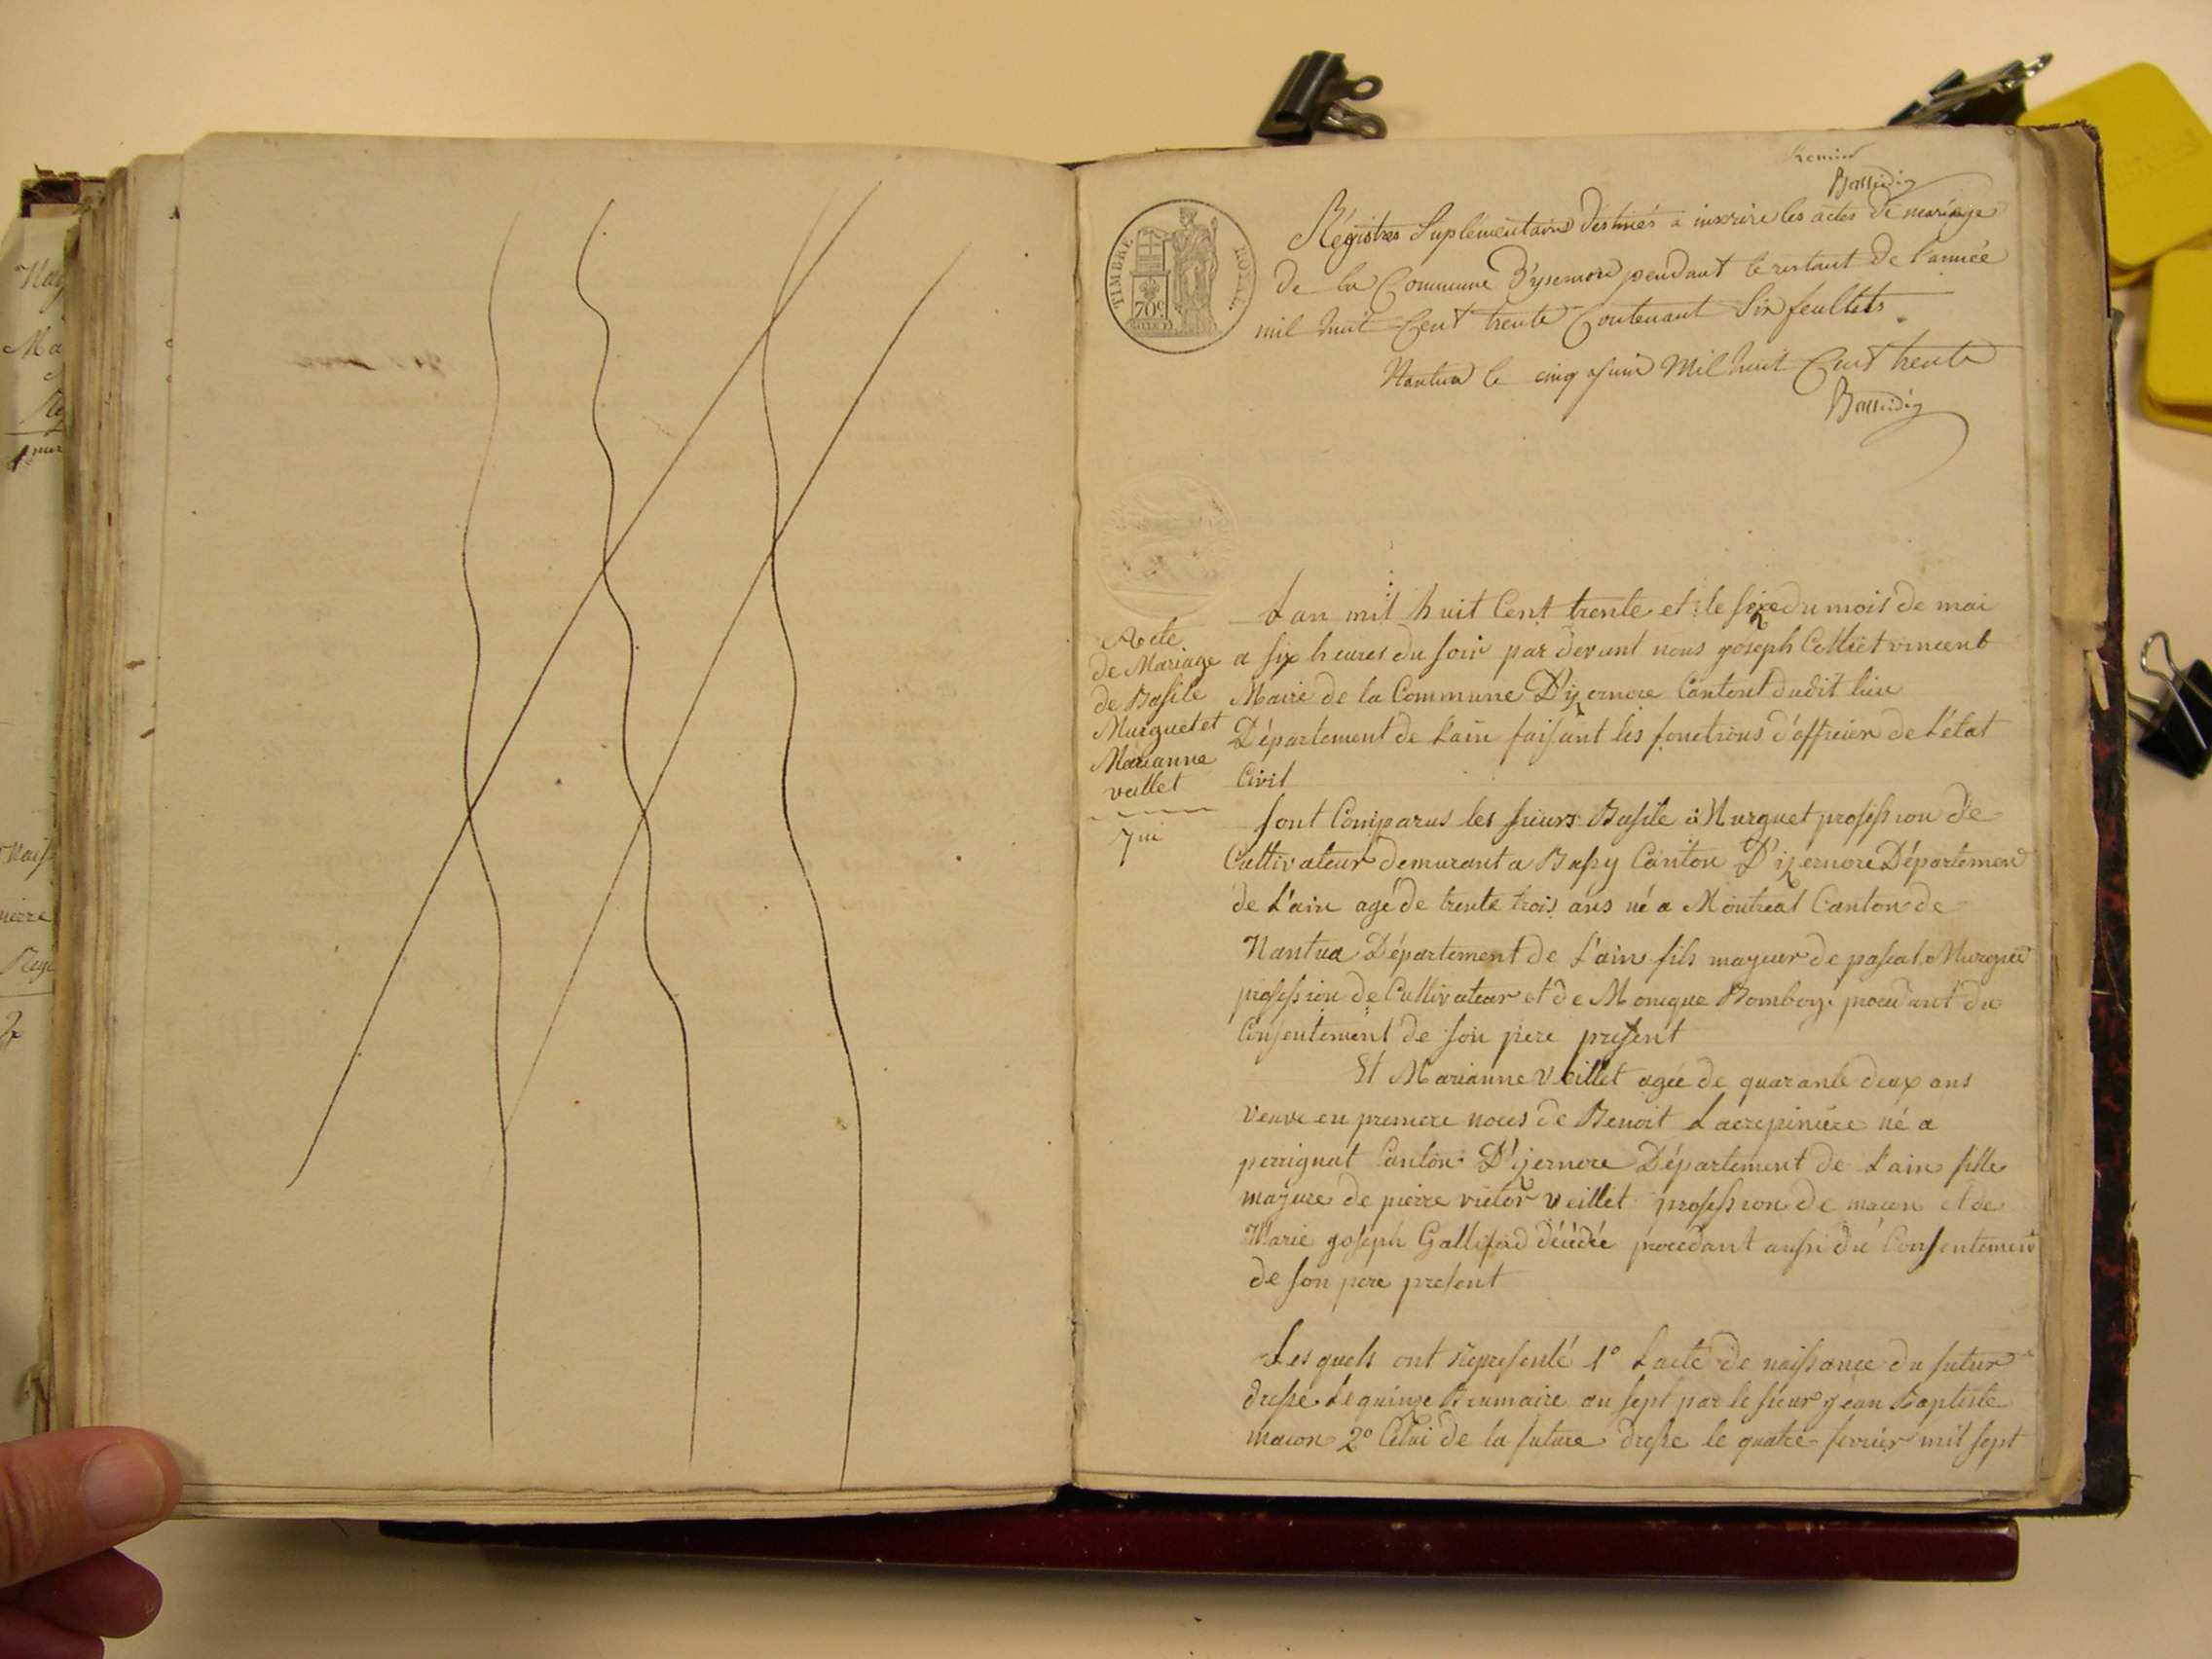 Nai
Ma
1
Naiss
pierre
TIMBRE ROYAL
70c
Premier
Registres Suplémentaires destinés a inscrire les actes de mariage
de la Commune D'ysernore pendant le restant de l'année
mil huit Cent trente Contenant Six feuillets
Nantua le cinq Juin Mil huit Cent trente
Acte
de Mariage
de Basile
Murguet et
Marianne
veillet
7me
L'an mil huit Cent trente et le seize du mois de mai
a six heures du soir par devant nous joseph Colliet vincent
Maire de la Commune D'izernore Canton dudit lieu
Département de L'ain faisant les fonctions d'officier de L'état
Civil
sont Comparus les sieurs Basile Murguet profession de
Cultivateur demurant a Bussy Canton D'izernore Département
de L'ain agé de trente trois ans né a Montreal Canton de
Nantua Département de L'ain fils mayeur de pascal Murguet
profession de Cultivateur et de Monique Bomboy procedant du
Consentement de son pere present
Et Marianne Veillet agée de quarante deux ans
veuve en premiere noces de Benoit Lacrepiniere né a
perrignat Canton D'izernore Département de L'ain fille
majure de pierre victor veillet profession de macon et de
Marie joseph Gallifad décédée procedant aussi du Consentement
de son pere present
Les quels ont representé 1° L'acte de naissance du futur
dresse Le quinze Brumaire an sept par le sieur jean Baptiste
macon 2° Celui de la future dresse le quatre fevrier mil sept